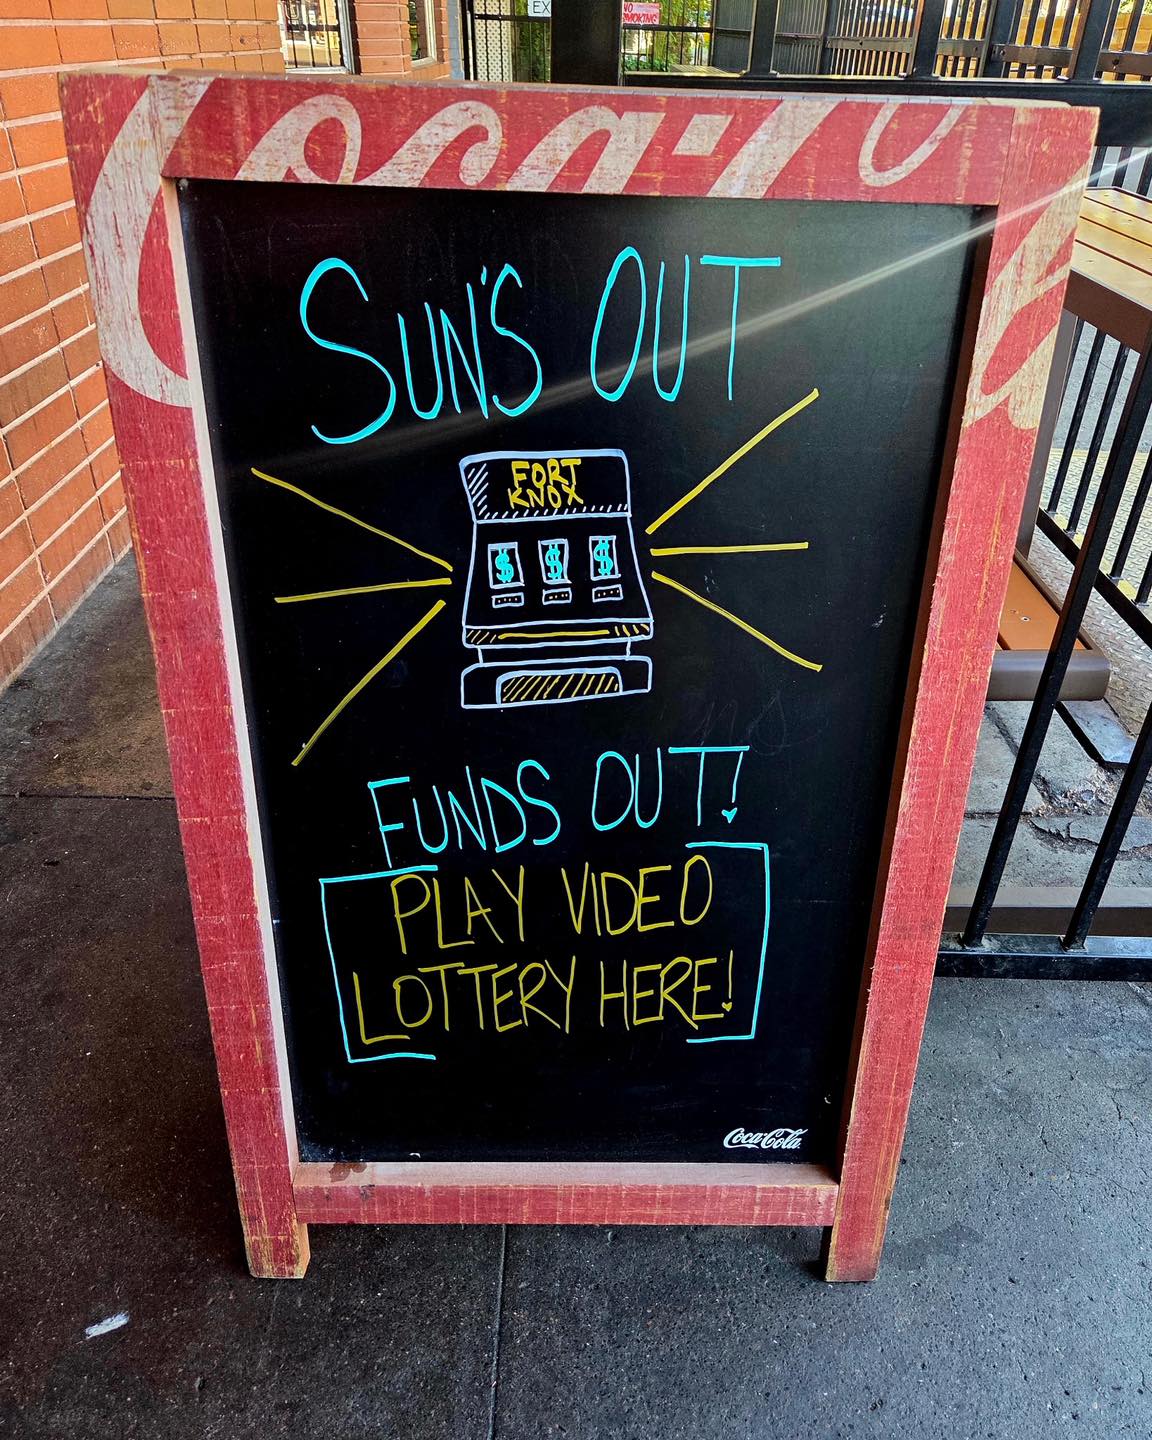 EX
NO
SMOKING
Coca-Cola
SUN'S OUT
FORT
KNOX
$ $ $
FUNDS OUT!
PLAY VIDEO
LOTTERY HERE!
Coca-Cola